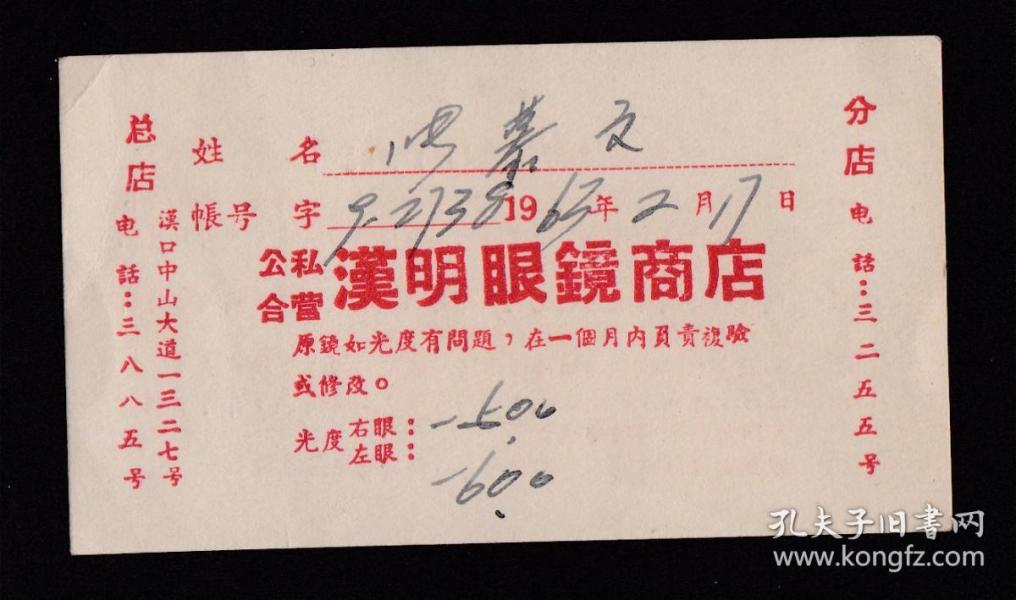 总店
电話：三八八五号
漢口中山大道一三二七号
姓名 慕文
帳号 字 1963年2月17日
公私合营 漢明眼鏡商店
原鏡如光度有問題，在一個月內負責複驗
或修改。
光度 右眼： -500
左眼： -600
分店
电話：三二五五号
孔夫子旧書网
www.kongfz.com